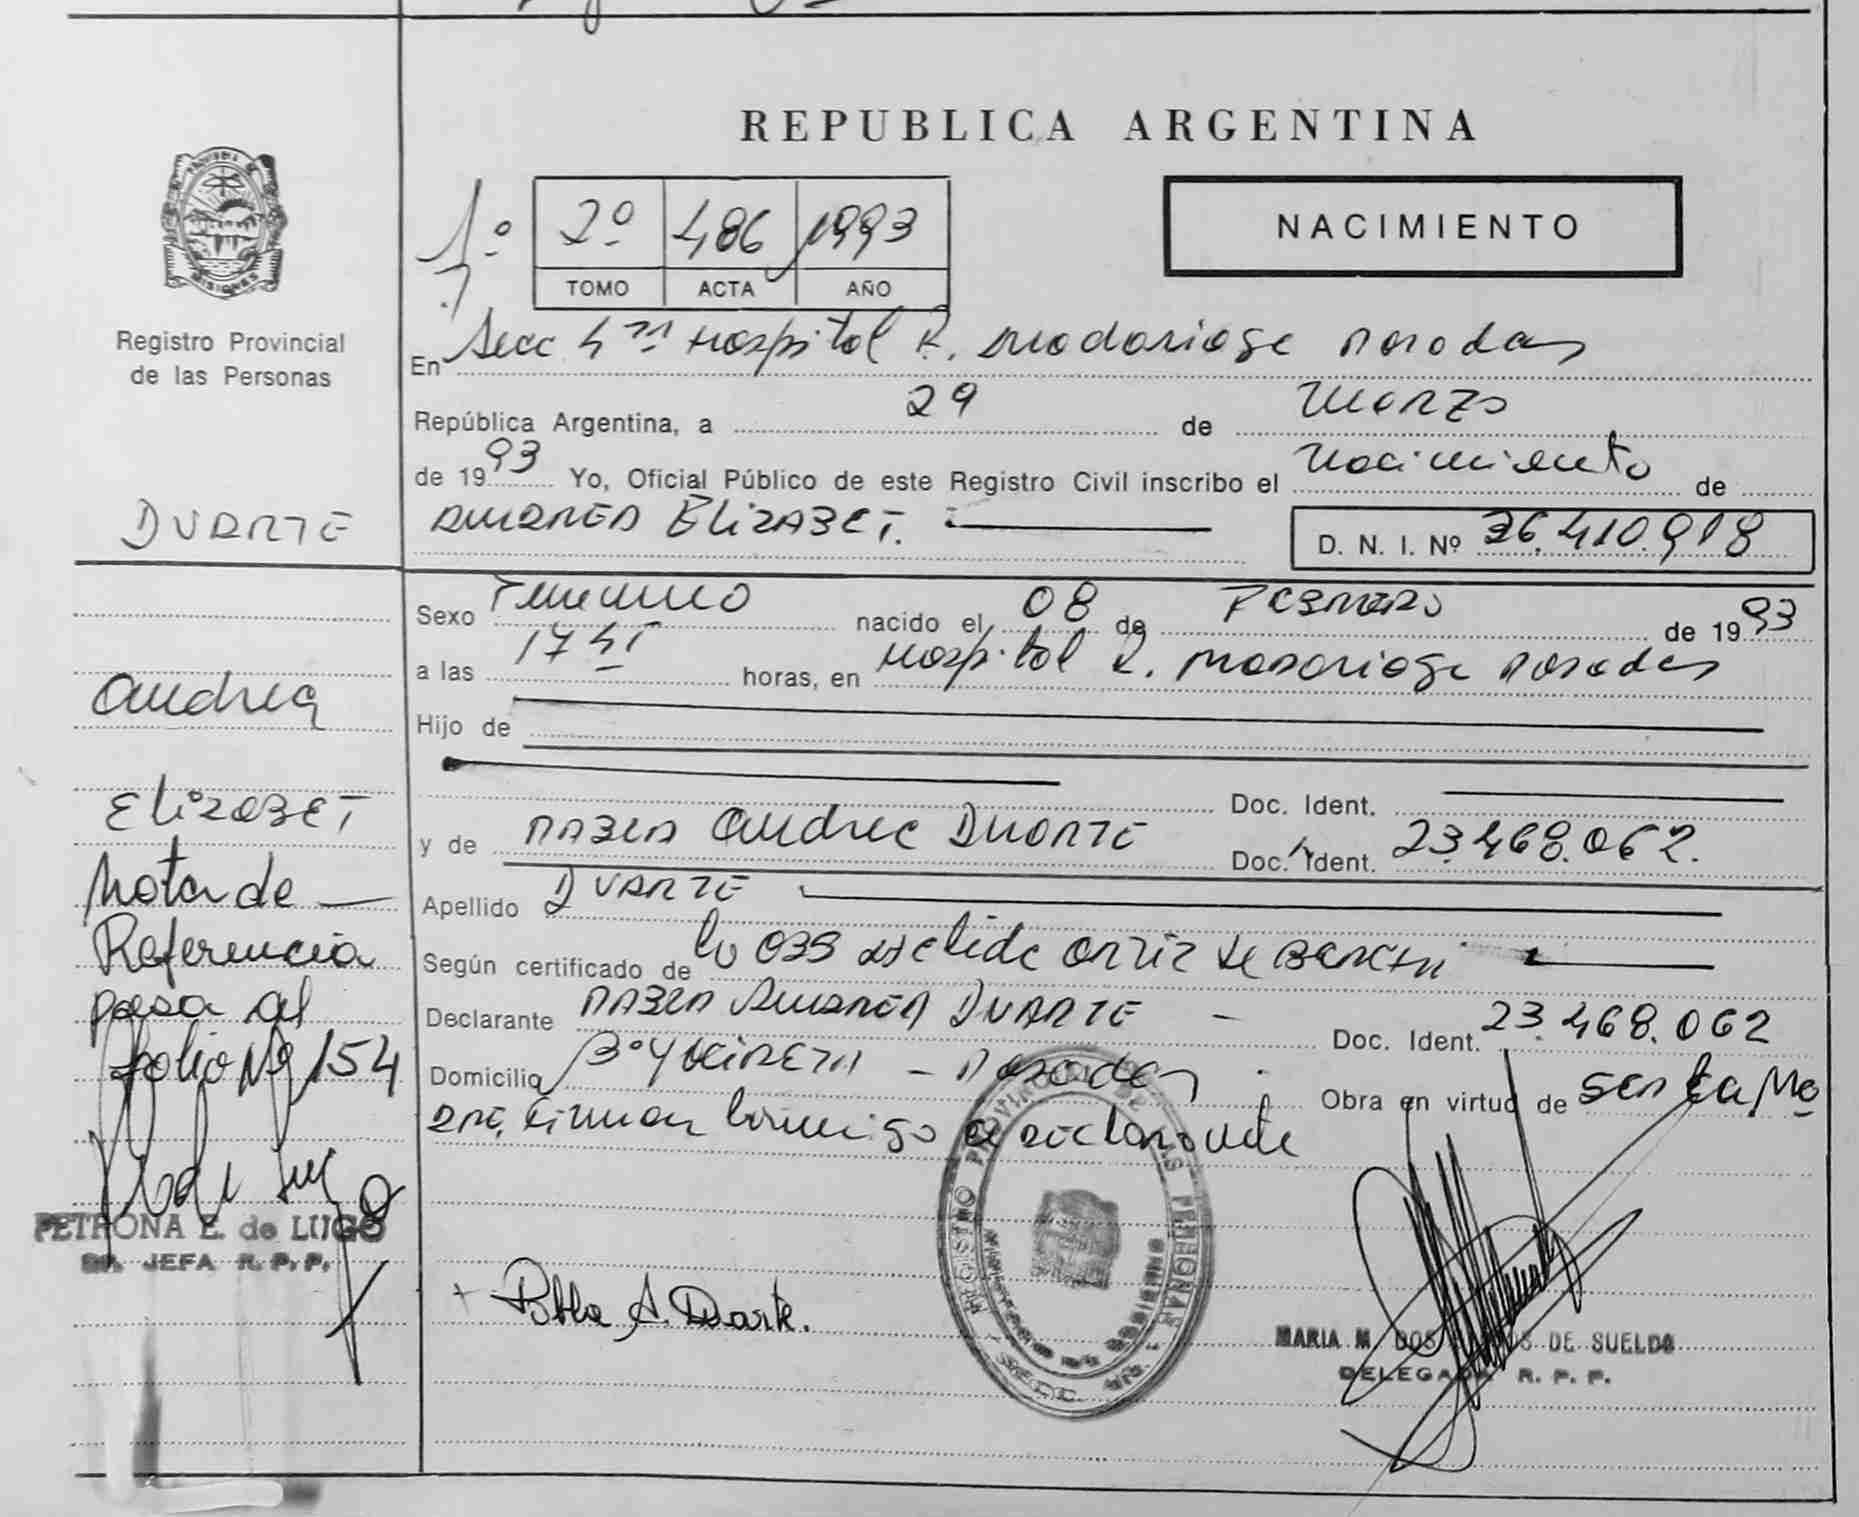 REPUBLICA ARGENTINA
NACIMIENTO
1º 2º 486 1993
TOMO ACTA AÑO
MISIONES
Registro Provincial
de las Personas
En Secc 4ta Hospital R. Madariaga Posadas
República Argentina, a 29 de Marzo
de 1993 Yo, Oficial Público de este Registro Civil inscribo el Nacimiento de
DUARTE
ANDREA ELIZABET.
D. N. I. Nº 36.410.918
Sexo Femenino nacido el 08 de FEBRERO de 1993
a las 17 45 horas, en Hospital R. Madariaga Posadas
Andrea
Hijo de
Elizabet
Doc. Ident.
y de PABLA Andrea DUARTE Doc. Ident. 23.468.062.
Nota de
Apellido DUARTE
Referencia
Según certificado de la OBS ORTIZ de
pasa al
Declarante PABLA ANDREA DUARTE - Doc. Ident. 23.468.062
folio Nº 154
Domicilio Bº YACIRETA - Posadas. Obra en virtud de
conmigo la declarante
PETRONA E. de LUGO
JEFA R. P. P.
Pabla A. Duarte.
REGISTRO PROVINCIAL DE LAS PERSONAS
MARIA M. DOS SANTOS DE SUELDO
DELEGADA R. P. P.